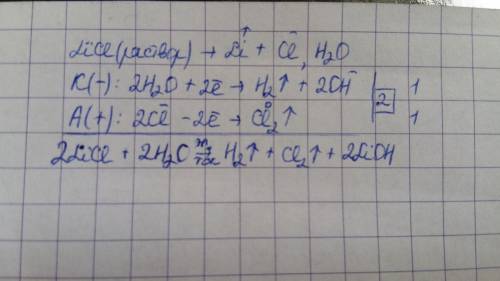 LiCl (раствор) → Li⁺ + Cl⁻, H₂O
К(-): 2H₂O + 2ē → H₂↑ + 2OH⁻ | 2 | 1
А(+): 2Cl⁻ - 2ē → Cl₂⁰↑ 1
2LiCl + 2H₂O эл. ток → H₂↑ + Cl₂↑ + 2LiOH